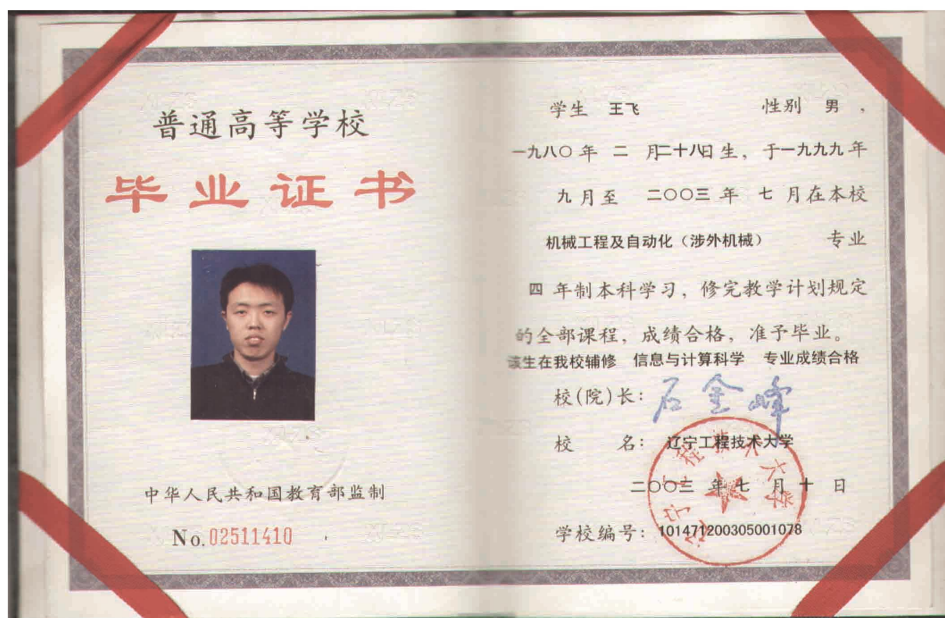 普通高等学校
毕业证书
中华人民共和国教育部监制
No.02511410
学生 王飞 性别 男，
一九八〇年 二 月二十八日生，于一九九九年
九月至 二〇〇三年 七 月在本校
机械工程及自动化（涉外机械） 专业
四 年制本科学习，修完教学计划规定
的全部课程，成绩合格，准予毕业。
该生在我校辅修 信息与计算科学 专业成绩合格
校(院)长：石金峰
校 名：辽宁工程技术大学
辽宁工程技术大学
二〇〇三 年 七 月 十 日
学校编号：101471200305001078